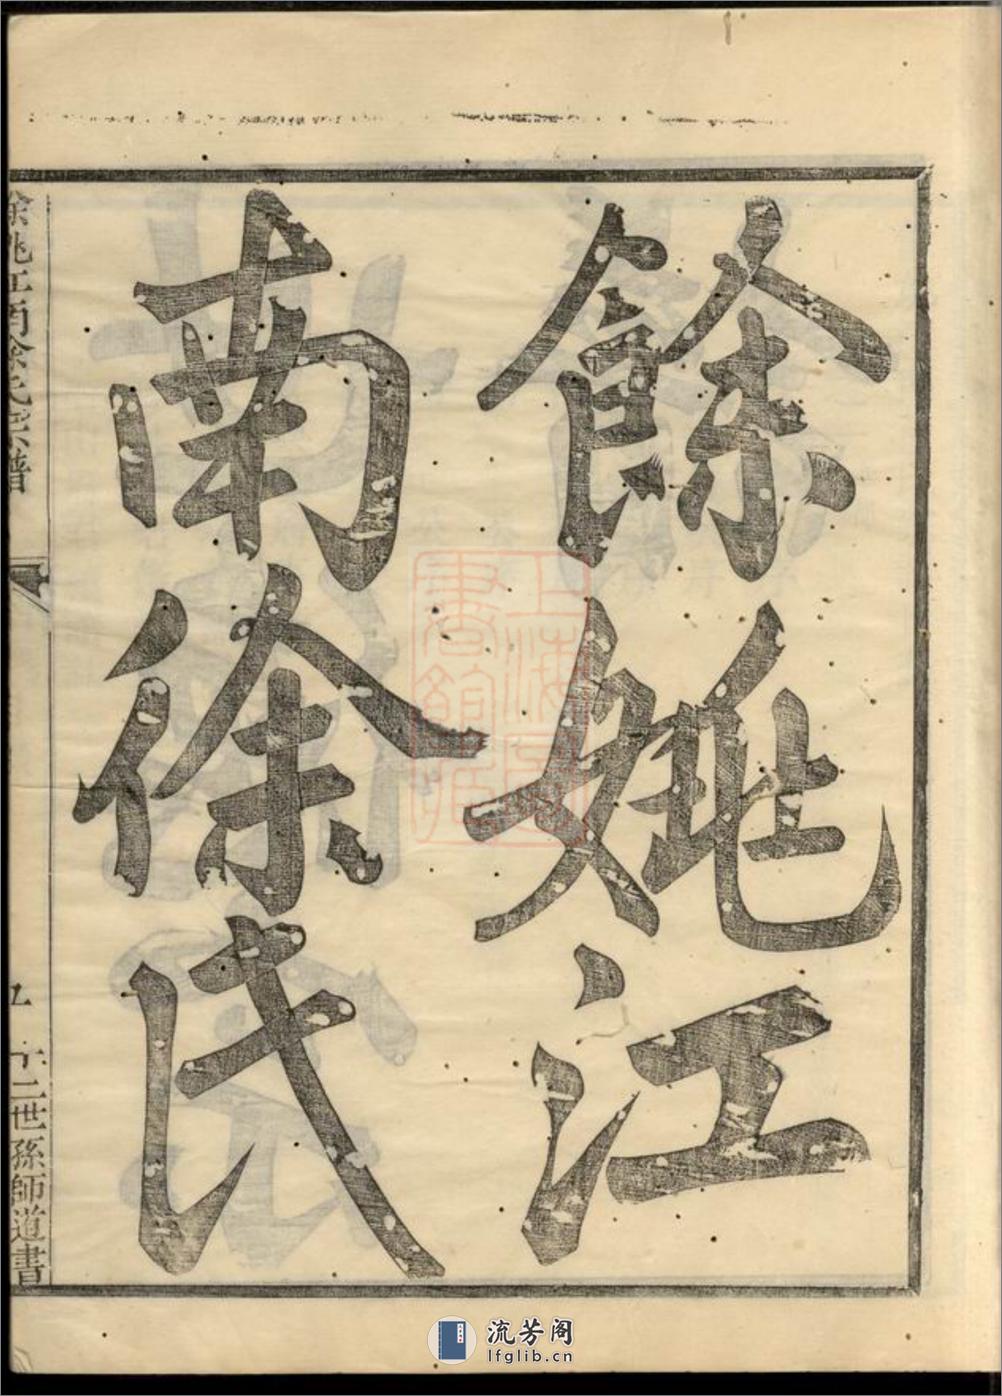 餘姚江
南徐氏
餘姚江南徐氏宗譜
十二世孫師道書
上海圖書館藏
流芳阁
lfglib.cn